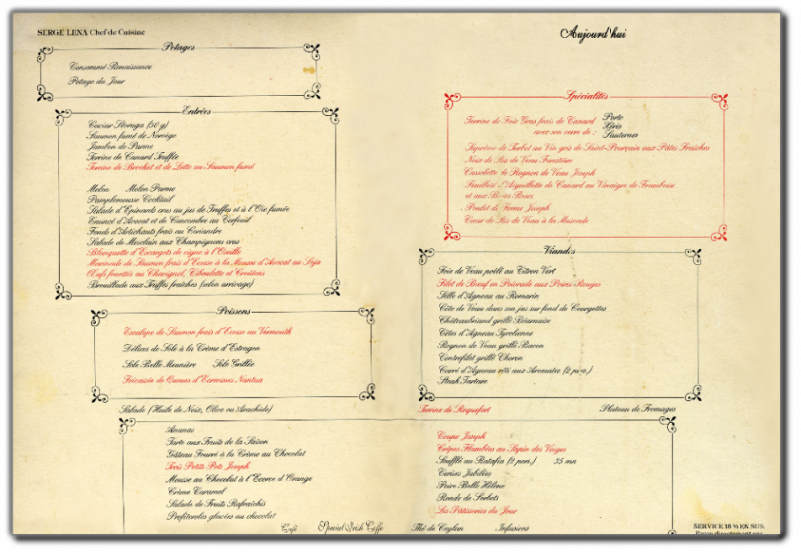 SERGE LENA Chef de Cuisine
Potages
Consommé Renaissance
Potage du Jour
Entrées
Caviar Sevruga (50 g)
Saumon fumé de Norvège
Jambon de Parme
Terrine de Canard Truffée
Terrine de Brochet et de Lotte au Saumon fumé
Melon Melon Parme
Pamplemousse Cocktail
Salade d'Epinards crus au jus de Truffes et à l'Oie fumée
Emincé d'Avocat et de Concombre au Cerfeuil
Fonds d'Artichauts frais au Coriandre
Salade de Mesclun aux Champignons crus
Blanquette d'Escargots de vigne à l'Oseille
Marinade de Saumon frais d'Ecosse à la Mousse d'Avocat au Soja
Œufs frouttés au Chavignol, Ciboulette et Croûtons
Brouillade aux Truffes fraîches (selon arrivage)
Poissons
Escalope de Saumon frais d'Ecosse au Vermouth
Délices de Sole à la Crème d'Estragon
Sole Belle Meunière Sole Grillée
Fricassée de Queues d'Ecrevisses Nantua
Salade (Huile de Noix, Olive ou Arachide)
Ananas
Tarte aux Fruits de la Saison
Gâteau Fourré à la Crème au Chocolat
Trois Petits Pots Joseph
Mousse au Chocolat à l'Ecorce d'Orange
Crème Caramel
Salade de Fruits Rafraîchis
Profiteroles glacées au chocolat
Café Special Irish Coffee
Aujourd'hui
Spécialités
Terrine de Foie Gras frais de Canard
avec son verre de :
Porto
Xérès
Sauternes
Suprême de Turbot au Vin gris de Saint-Pourçain aux Pâtes Fraîches
Noix de Ris de Veau Forestière
Cassolette de Rognon de Veau Joseph
Feuilleté d'Aiguillette de Canard au Vinaigre de Framboise
et aux Baies Roses
Poulet de Ferme Joseph
Cœur de Ris de Veau à la
Viandes
Foie de Veau poêlé au Citron Vert
Filet de Bœuf en Poivrade aux Poires Rouges
Selle d'Agneau au Romarin
Côte de Veau dans son jus sur fond de Courgettes
Châteaubriand grillé Béarnaise
Côtes d'Agneau Tyrolienne
Rognon de Veau grillé Bacon
Contrefilet grillé Choron
Carré d'Agneau rôti aux Aromates (2 pers.)
Steak Tartare
Terrine de Roquefort Plateau de Fromages
Coupe Joseph
Crêpes Flambées au Sapin des Vosges
Soufflé au Ratafia (2 pers.) 35 mn
Cerises Jubilées
Poire Belle Hélène
Ronde de Sorbets
Les Pâtisseries du Jour
Thé de Ceylan Infusions
SERVICE 15 % EN SUS